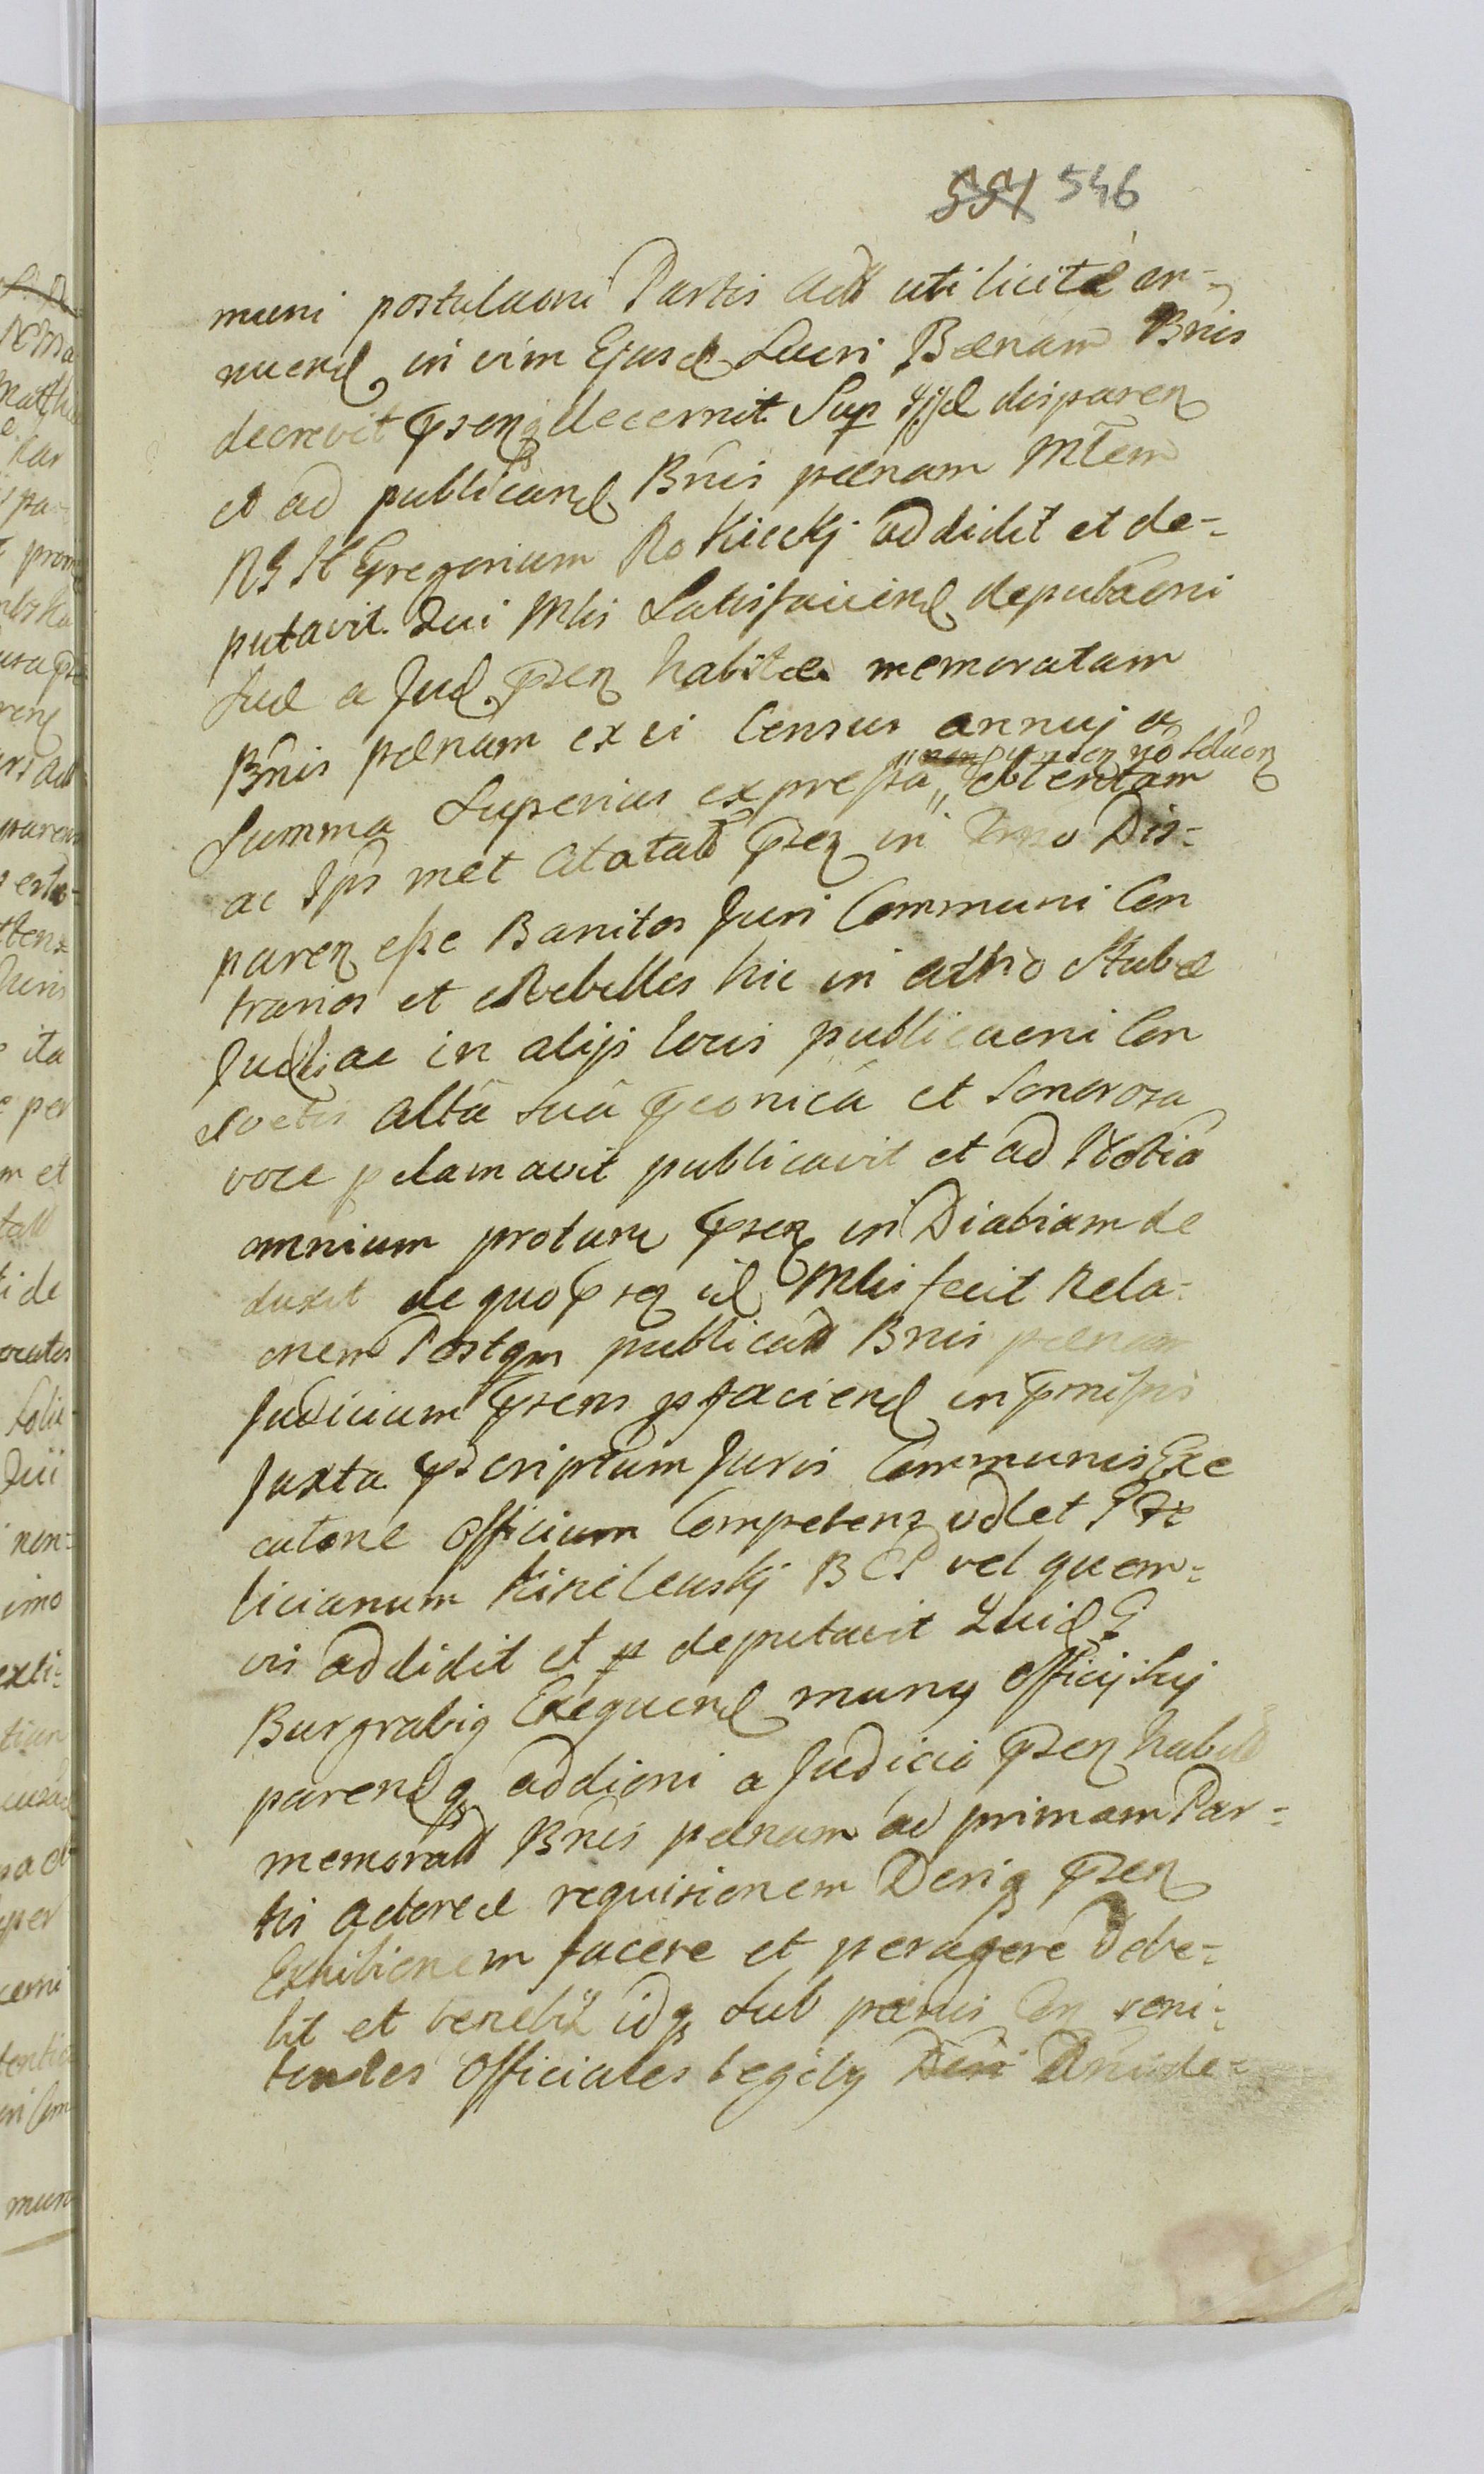 551 546
muni postulaoni Partis Act uti licitæ an-
nuend in vim Ejusd Lucri Bænam Bnis
decrevit pseng decernit. Sup ijsd disparen
et ad publicand Bnis pænam Mlem
RG H Gregorium Rokickj addidit et de-
putavit. Qui Mlis Satisfaciend deputaoni
suæ a Jud. psen habitæ memoratam
Bnis pænam ex vi Census annuj a
non solucon
Summa Superius expressa obtentam
ac Ips met Citatad psen in Termo Dis-
paren esse Banitos Juri Communi Con
trarios et Rebelles hic in atrio Stubæ
Judlis ac in alijs locis publicaoni Con
svetis altâ suâ pconicâ et Sonorosa
voce pclamavit publicavit et ad Notitiâ
omnium protunc psen in Diabiam de
duxit de quo psen id Mlis fecit Rela-
onem Postqm publicatã Bnis pænam
Judicium psens pfaciend in pmissis
Juxta pscriptum Juris Communis Exe
cutone officium Competens videlet G Fe
licianum Kisielewskj BCP vel quem-
vis addidit et deputavit Quid G
Burgrabig Exequend muny Officij sui
parendq addioni a Judicio psen habitæ
memoratã Bnis pænam ad primam Par-
tis Actoreæ requisionem Deng psen
Exhibionem facere et peragere debe-
bit et tenebit idq sub pænis in reni-
tentes Officiales Legiby